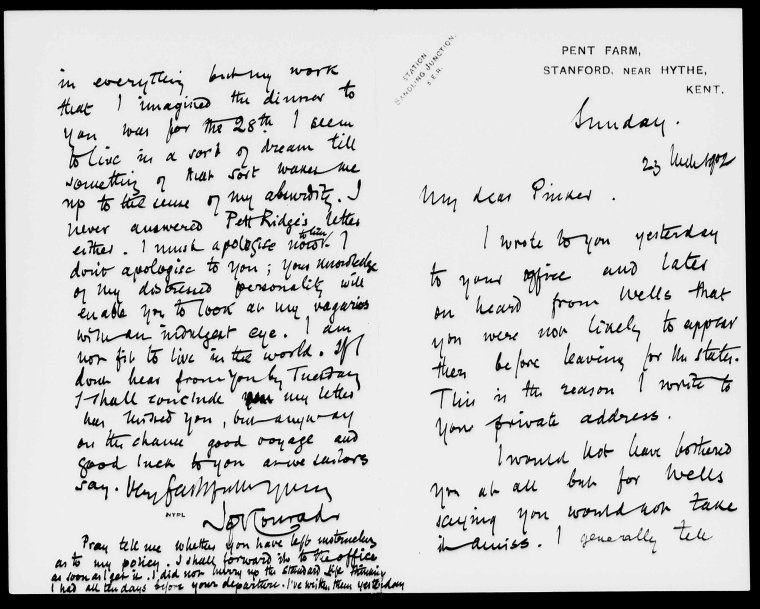 PENT FARM,
STANFORD, NEAR HYTHE,
KENT.
STATION
SANDLING JUNCTION.
S.E.R.
Sunday.
23 1902
My dear Pinker.
I wrote to you yesterday
to your office and later
on heard from Wells that
you were not likely to appear
there before leaving for the States.
This is the reason I write to
your private address.
I would not have bothered
you at all but for Wells
saying you would not take
it amiss. I generally tell
in everything but my work
that I imagined the dinner to
you was for the 28th. I seem
to live in a sort of dream till
something of that sort wakes me
up to the sense of my absurdity. I
never answered Pett Ridge's letter
either. I must apologise to him now. I
don't apologise to you; your knowledge
of my distressed personality will
enable you to look at my vagaries
with an indulgent eye. I am
not fit to live in the world. If I
don't hear from you by Tuesday
I shall conclude my letter
has missed you, but anyway
on the chance good voyage and
good luck to you as we sailors
say. Very faithfully yours
NYPL
Jph Conrad
Pray tell me whether you have left instructions
as to my policy. I shall forward it to the office
as soon as I get it. I did not hurry up the Standard Life thinking
I had all ten days before your departure. I've written them yesterday